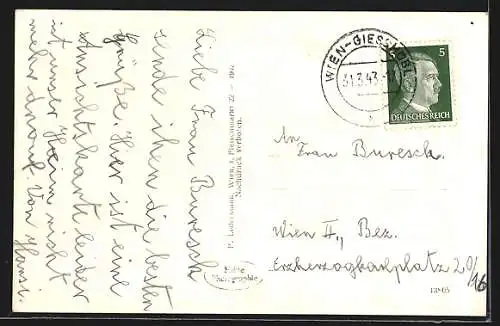 Liebe Frau Buresch
sende ihen die besten
Grüße. Hier ist eine
Ansichtskarte leider
ist unser Heim nicht
mehr drauf. Von Hansi.
P. Ledermann, Wien, I., Fleischmarkt 22
Nachdruck verboten.
Echte
Photographie
WIEN-GIESSHÜBL
31.3.43
5
DEUTSCHES REICH
An
Frau Buresch.
Wien II., Bez.
Erzherzogkarlplatz 20/16